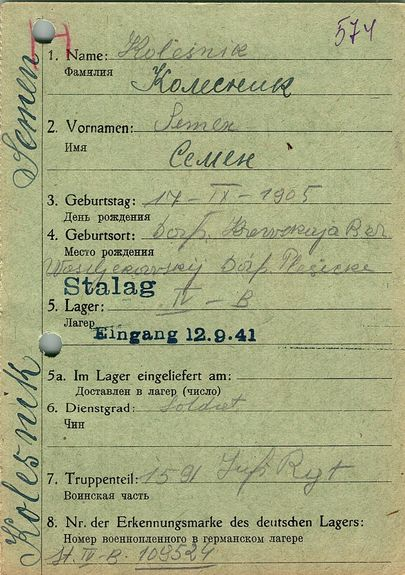 574
Н
Semen
Kolesnik
1. Name: Kolesnik
Фамилия
Колесник
2. Vornamen: Semen
Имя
Семен
3. Geburtstag: 17-IX-1905
День рождения
4. Geburtsort: Dorf.
Место рождения
Dorf
Stalag
5. Lager: IV-B
Лагер
Eingang 12.9.41
5a. Im Lager eingeliefert am:
Доставлен в лагер (число)
6. Dienstgrad: Soldat
Чин
7. Truppenteil: 1591 Inf. Rgt
Воинская часть
8. Nr. der Erkennungsmarke des deutschen Lagers:
Номер военнопленного в германском лагере
St. IV-B. 109524